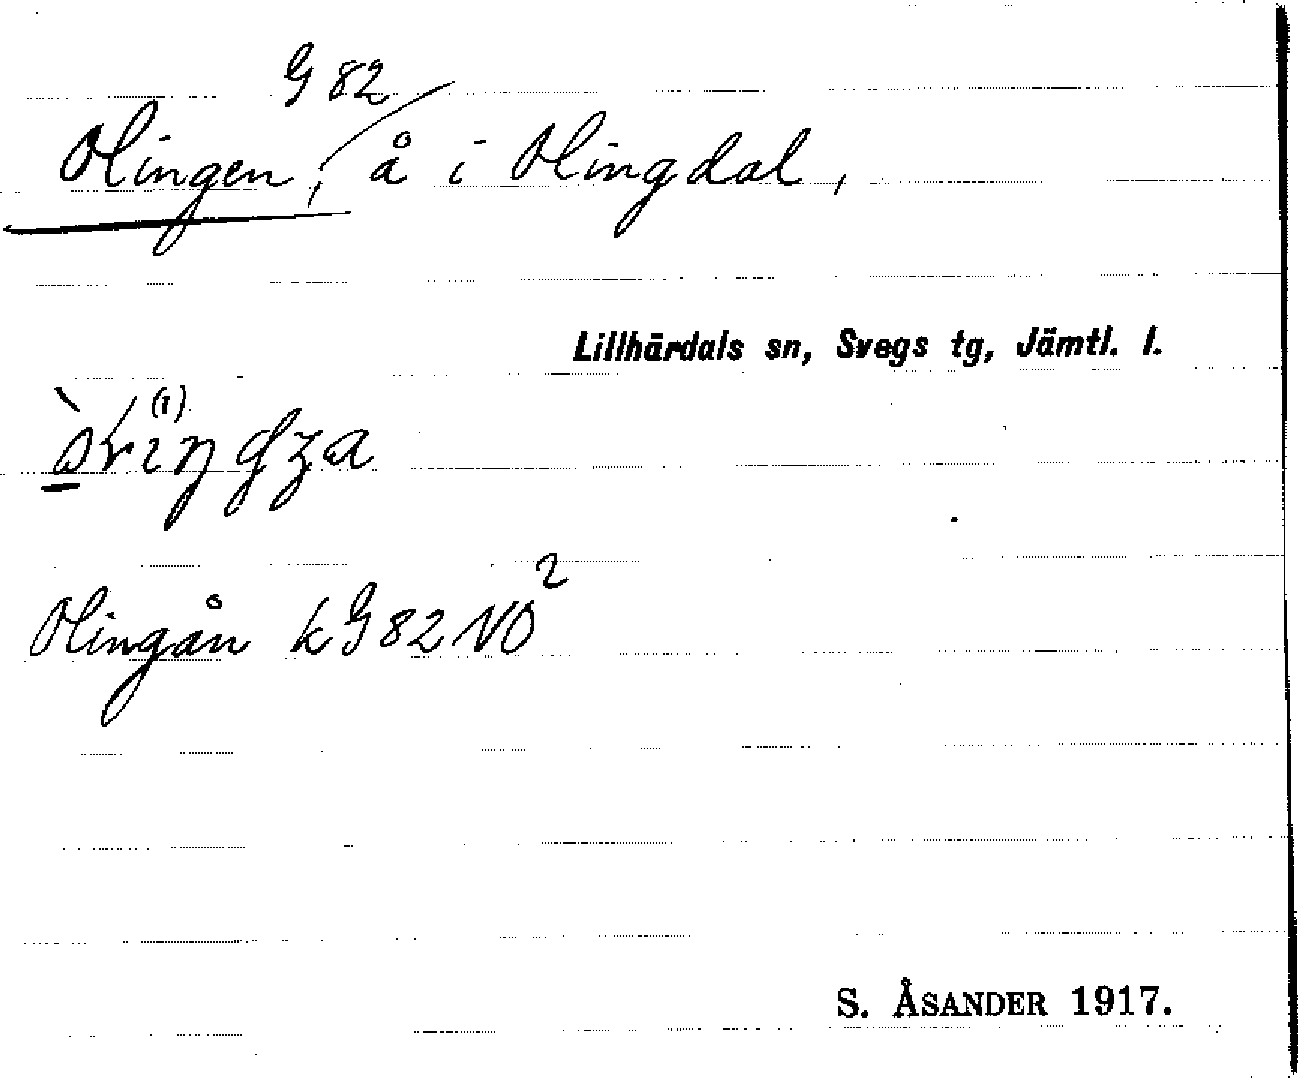 G 82
Olingen, å i Olingdal,
Lillhärdals sn, Svegs tg, Jämtl. l.
Olingån k G 82 NO²
S. ÅSANDER 1917.